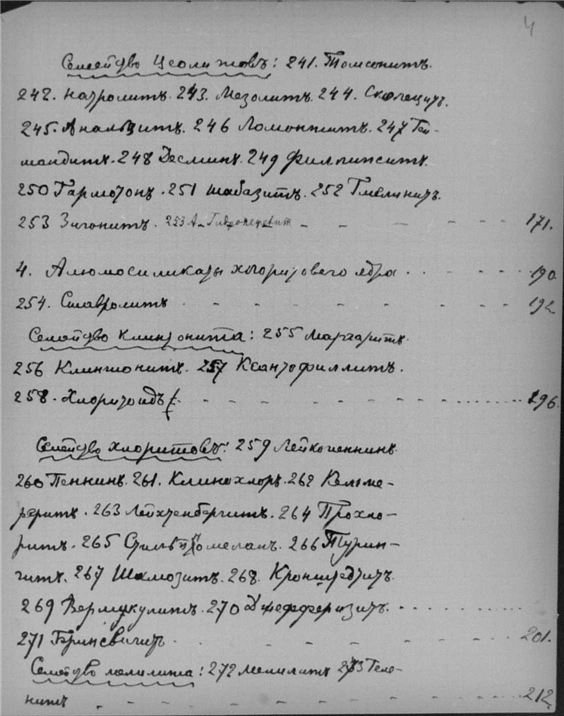 4
Семейство Цеолитовъ: 241. Томсонитъ.
242. Натролитъ. 243. Мезолитъ. 244. Сколецитъ.
245. Анальцитъ. 246 Ломонтитъ. 247 Гей-
ландитъ. 248 Десминъ. 249 Филлипситъ.
250 Гармотонъ. 251 Шабазитъ. 252 Гмелинитъ.
253 Зигонитъ. 253 А - - - - - - 171.
4. Алюмосиликаты хлоритового ядра - - - - 190
254. Ставролитъ - - - - - - - - 192
Семейство клинтонита: 255 Маргаритъ.
256 Клинтонитъ. 257 Ксантофиллитъ.
258. Хлоритоидъ - - - - - - - - 196.
Семейство хлоритовъ: 259 Лейхтеннинъ
260 Пеннинъ. 261. Клинохлоръ. 262 Кемме-
реритъ. 263 Лейхтенбергитъ. 264 Прохло-
ритъ. 265 Стильпномеланъ. 266 Тюрин-
гитъ. 267 Шамозитъ. 268. Кронштедтитъ.
269 Вермикулитъ. 270 Джефферизитъ. - - - -
271 - - - - - - - - 201.
Семейство мелилита: 272 Мелилитъ 273 Геле-
нитъ - - - - - - - - 212